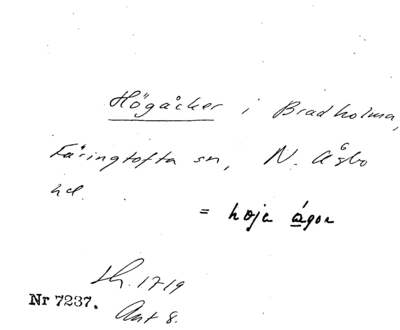 Högåcker i Bradholma,
Färingtofta sn, N. Åsbo
hd.
= høja ågor
Lh. 1719
Nr 7237.
Ant 8.